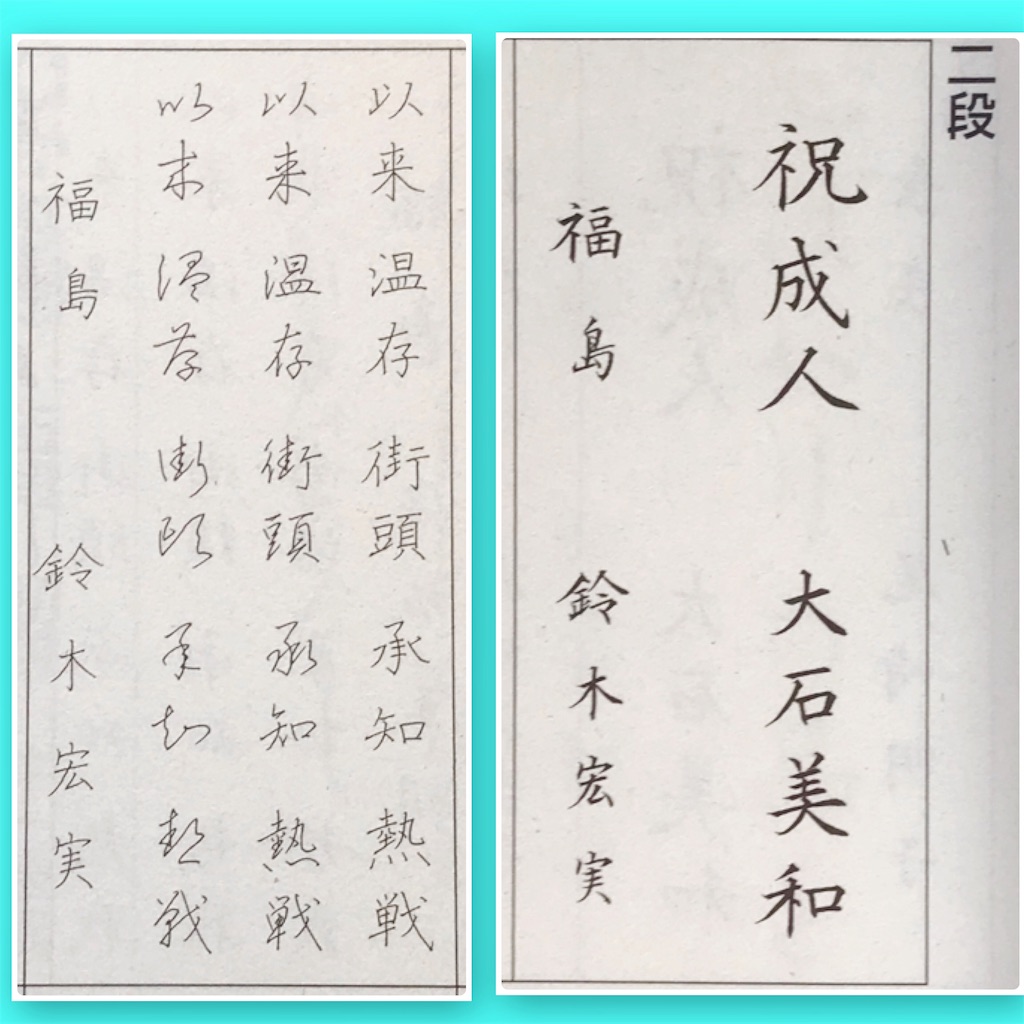 以来 温存 街頭 承知 熱戦
以来 温存 街頭 承知 熱戦
以来 温存 街頭 承知 熱戦
福島 鈴木宏実
二段
祝成人 大石美和
福島 鈴木宏実